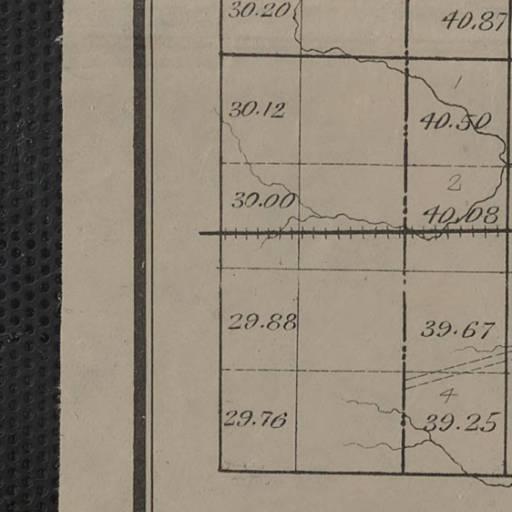 30.20 40.87
1
30.12 40.50
2
30.00 40.08
29.88 39.67
4
29.76 39.25